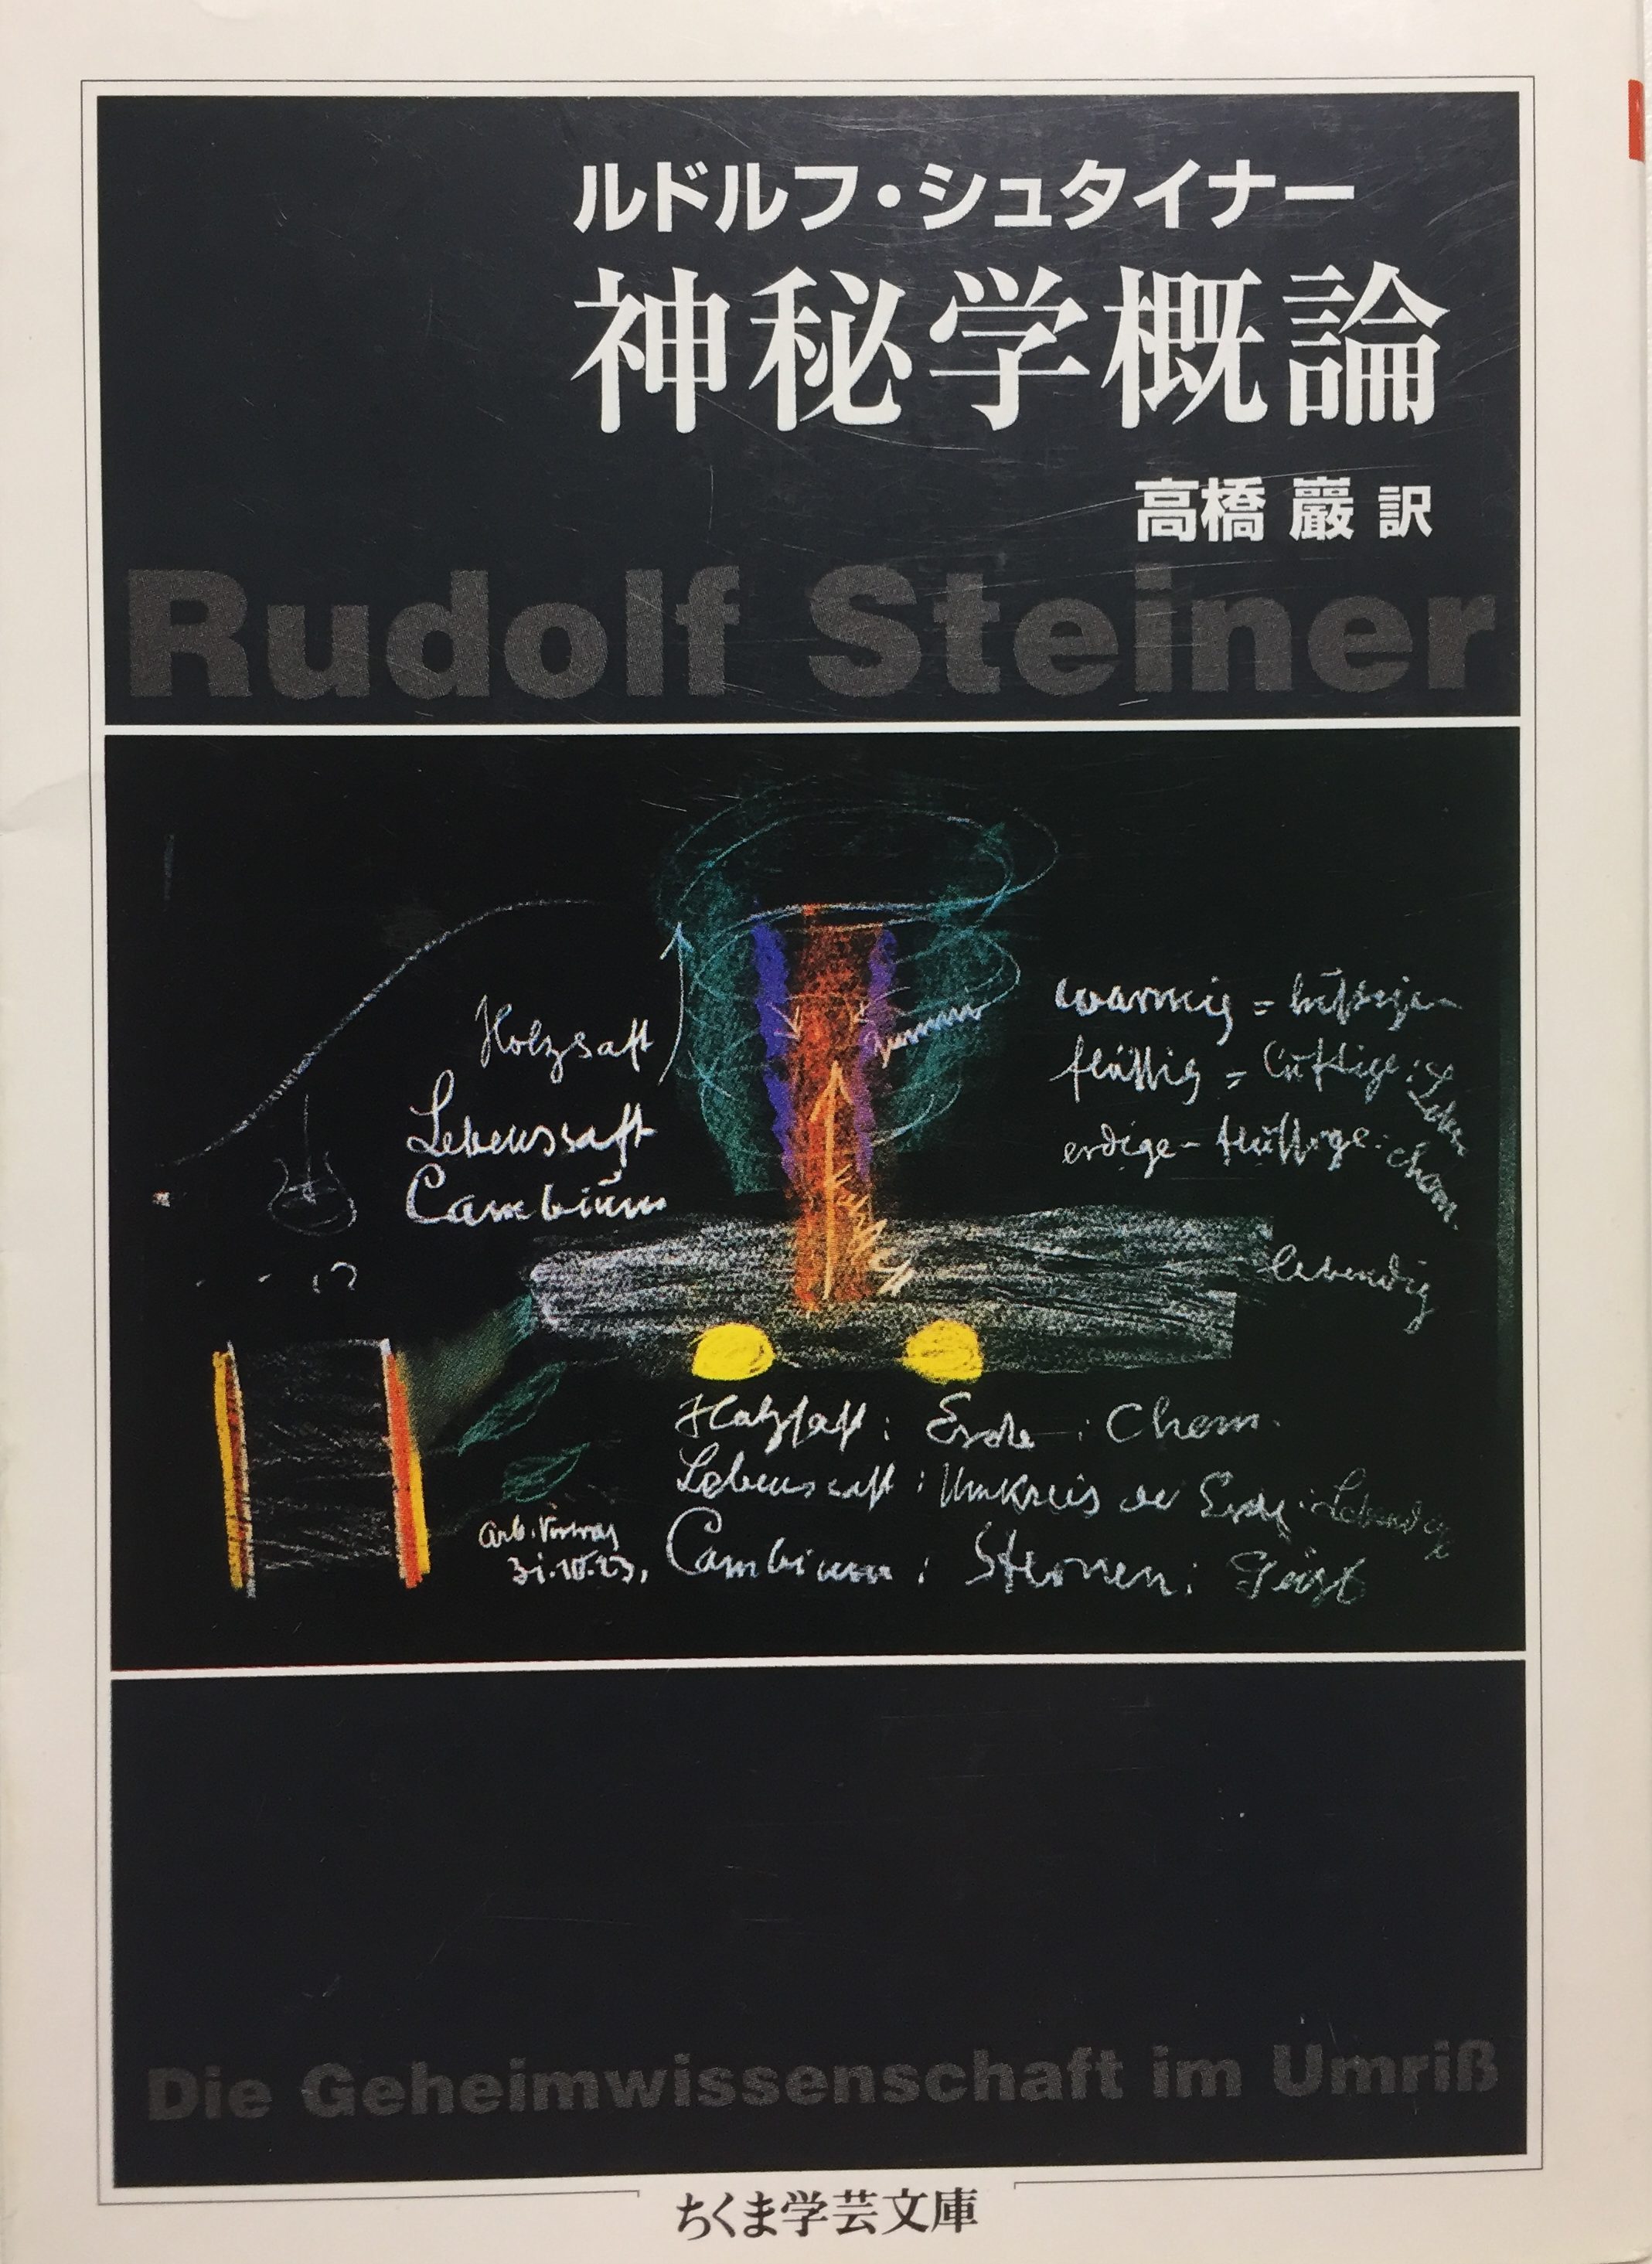 ルドルフ・シュタイナー
神秘学概論
高橋 巖 訳
Rudolf Steiner
Holzsaft
Lebenssaft
Cambium
warmig =
flüssig = luftige :
erdige - flüssige : chem.
lebendig
Holzsaft : Erde : Chem.
Lebenssaft : Umkreis der Erde :
Cambium : Sternen : Geist
Arb. Vortrag
31.10.23,
Die Geheimwissenschaft im Umriß
ちくま学芸文庫